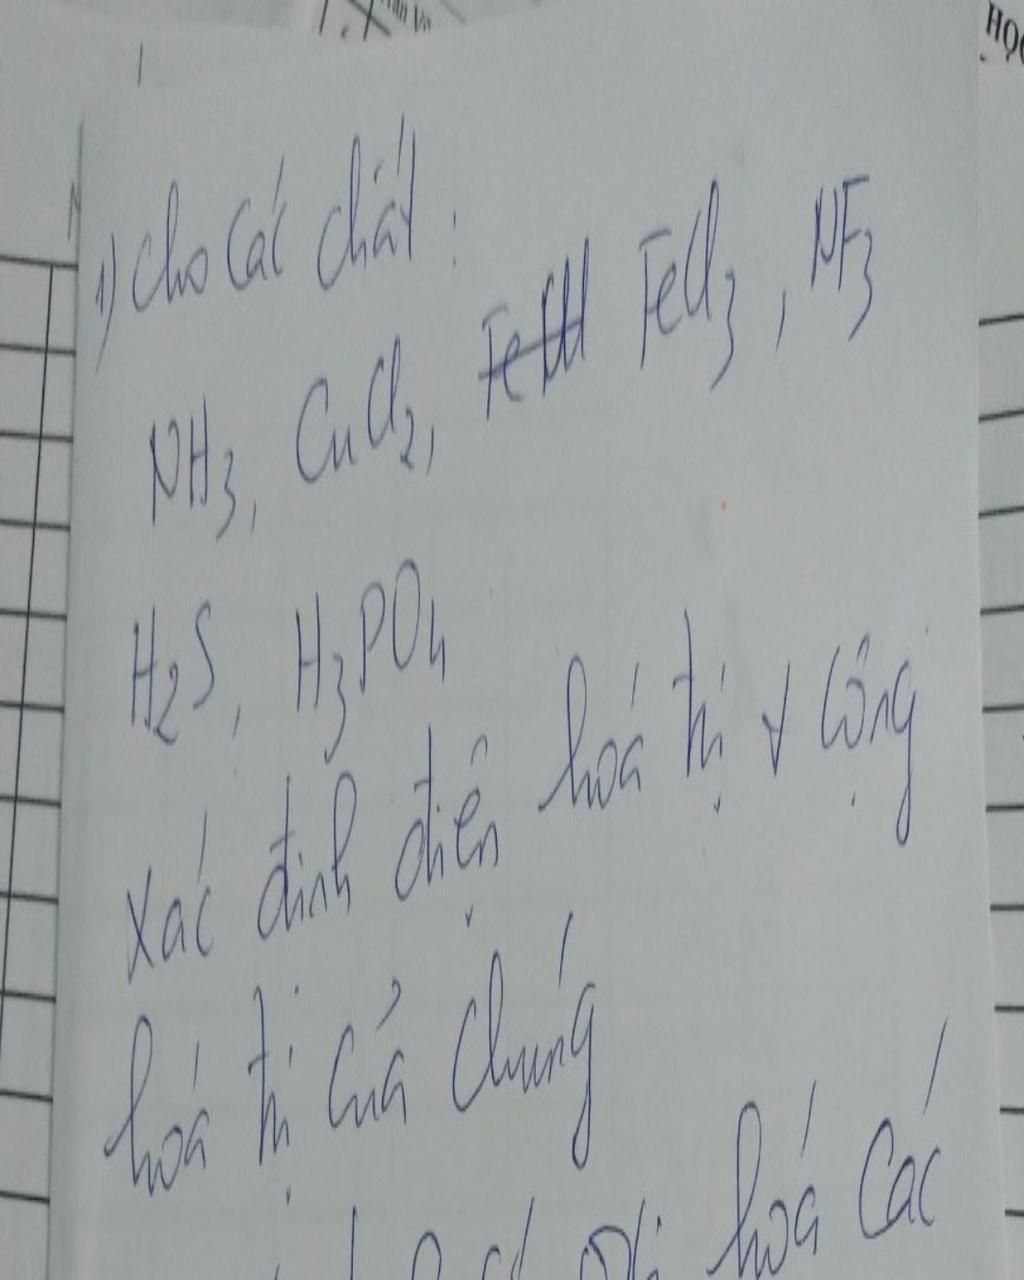 1) Cho các chất :
NH3, CuCl2, FeCl3, NF3
H2S, H3PO4
Xác định điện hoá trị & cộng
hoá trị của chúng
hoá các
HỌC